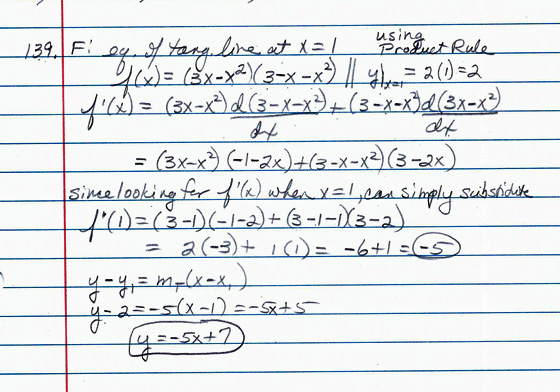 139. F: eq. of tang. line at x = 1 using Product Rule
f(x) = (3x-x²)(3-x-x²) || y|ₓ₌₁ = 2(1) = 2
f'(x) = (3x-x²) d(3-x-x²)/dx + (3-x-x²) d(3x-x²)/dx
= (3x-x²)(-1-2x) + (3-x-x²)(3-2x)
since looking for f'(x) when x=1, can simply substitute
f'(1) = (3-1)(-1-2) + (3-1-1)(3-2)
= 2(-3) + 1(1) = -6+1 = -5
y-y₁ = m_T(x-x₁)
y-2 = -5(x-1) = -5x+5
y = -5x+7